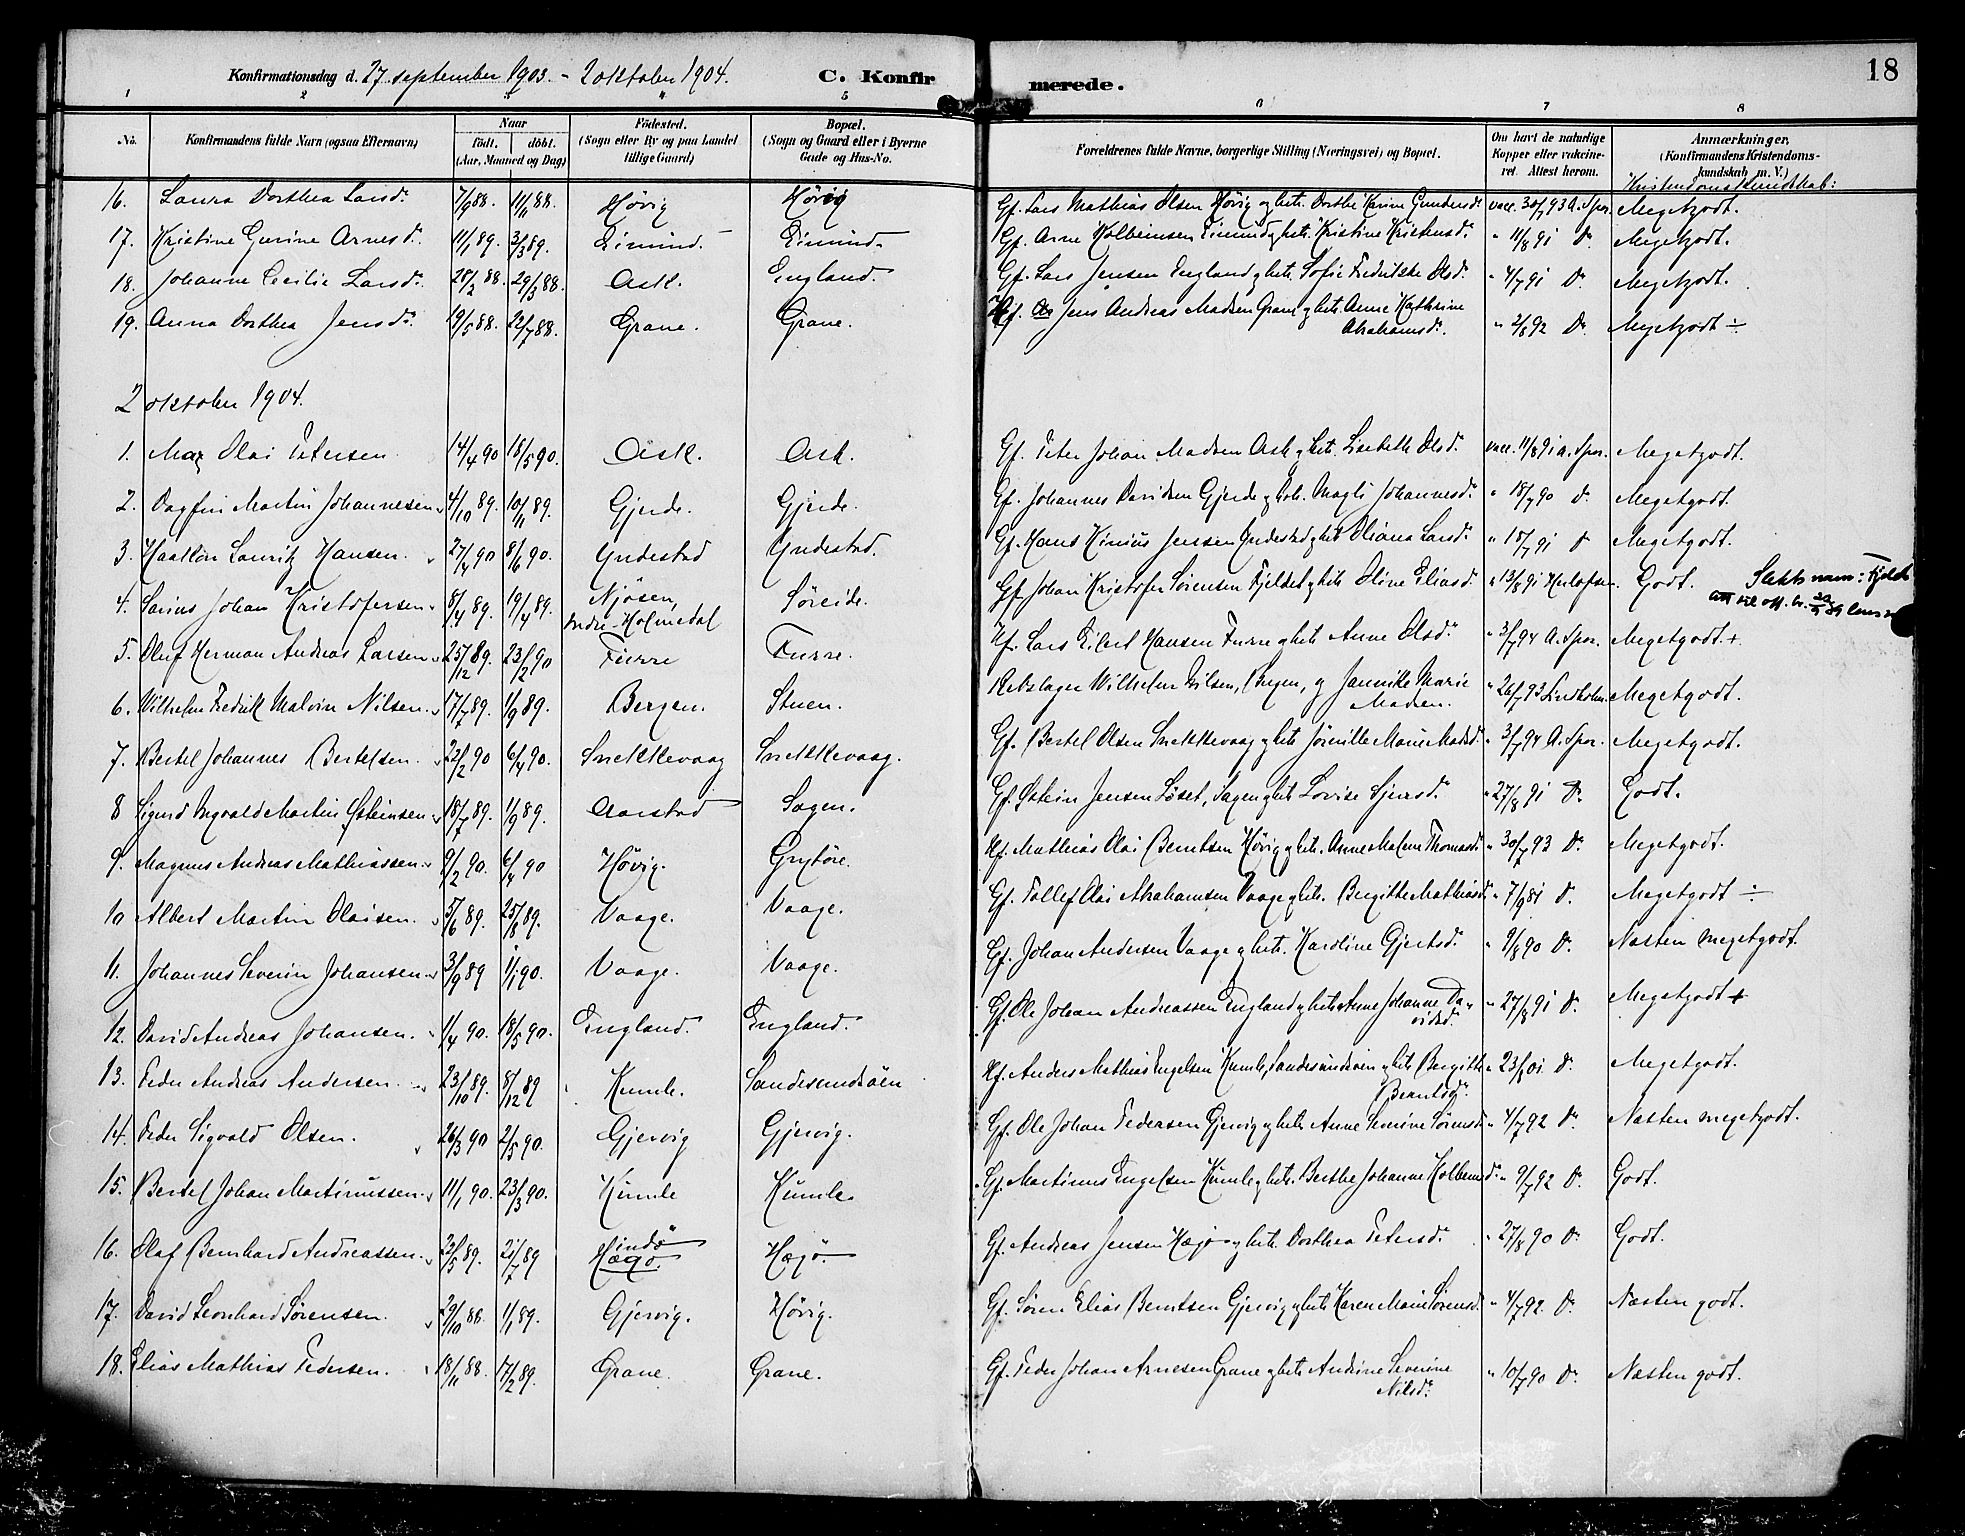 18
Konfirmationsdag d. 27. september 1903. - 2 oktober 1904. C. Konfirmerede.
1 2 3 4 5 6 7 8
No. Konfirmandens fulde Navn (ogsaa Efternavn) Naar födt. döbt. (Aar, Maaned og Dag) Fødested. (Sogn eller By og paa Landet tillige Gaard) Bopæl. (Sogn og Gaard eller i Byerne Gade og Hus-No. Forældrenes fulde Navne, borgerlige Stilling (Næringsvei) og Bopæl. Om havt de naturlige Kopper eller vakcineret. Attest herom. Anmærkninger, (Konfirmandens Kristendomskundskab m. V.)
Kristendomskundskab:
16. Laura Dorthea Larsdr. 7/9 88. 11/11 88. Hövig Hövig Gf. Lars Mathias Olsen Hövig og h. Dorthe Karine Gundersdr. vacc. 30/7 93 A. Spor. Megetgodt.
17. Kristine Gurine Arnesd. 11/1 89. 3/3 89. Eimind. Eimind. Gf. Arne Kolbeinsen Eimind og h. Kristine Kristensdr. " 11/8 91 Do. Megetgodt.
18. Johanne Cecilie Larsdr. 28/2 88. 29/3 88. Ask. England. Gf. Lars Jensen England og h. Sofie Fredrikke Olsdr. " 4/7 91 Do. Megetgodt.
19. Anna Dorthea Jensdr. 19/5 88. 22/7 88. Grane. Grane. Jens Andreas Madsen Grane og h. Anne Kathrine Abrahamsdr. " 2/8 92 Do. Megetgodt ÷
2 oktober 1904.
1. Olai Petersen 14/4 90 18/5 90. Ask. Ask. Gf. Peter Johan Madsen Ask og h. Lisebeth Olsdr. vacc. 11/8 91 A. Spor. Megetgodt.
2. Dagfin Martin Johannesen 4/10 89. 10/11 89. Gjerde. Gjerde. Gf. Johannes Davidsen Gjerde og h. Magli Johannesdr. " 18/7 90 Do. Megetgodt.
3. Haakon Lauritz Hansen. 27/4 90 8/6 90. Yndestad Yndestad. Gf. Hans Jensen Yndestad og h. Oliana Larsdr. " 18/7 91 Do Megetgodt.
4. Sarius Johan Kristofersen 8/4 89. 19/4 89. Njösen, Indre-Holmedal Söreide. Gf. Johan Kristofer Sörensen Fjeldet og h. Oline Eliasd. " 13/8 91 Godt. Slektsnavn: Fjeld
5. Oluf Herman Andreas Larsen 25/12 89. 23/2 90 Furre Furre. Hf. Lars Eilert Hansen Furre og h. Anne Olsdr. " 3/7 94 A. Spor. Megetgodt. +
6. Wilhelm Fredrik Malvin Nilsen. 17/7 89. 1/9 89. Bergen. Stuen. Rebslager Wilhelm Nilsen, Bergen, og Jannike Marie Madsen. " 26/7 93 Lindholm Megetgodt.
7. Bertel Johannes Bertelsen. 22/2 90 6/4 90. Snekkevaag Snekkevaag. Gf. Bertel Olsen Snekkevaag og h. Marie Madsd. " 3/7 94 A. Spor. Megetgodt.
8 Sigurd Ingvald Martin Østeinsen 18/7 89. 1/9 89. Aarstad Sagen. Gf. Østein Jensen Löset, Sagen og h. Lovise Sjursdr. " 27/8 91 Do. Godt.
9. Magnus Andreas Mathiassen 9/2 90. 6/4 90 Hövig. Grytöre. Hf. Mathias Olai Berntsen Hövig og h. Anne Malene Thomasdr. " 30/7 93 Do. Megetgodt.
10 Albert Martin Olaisen. 5/6 89. 25/8 89. Vaage. Vaage. Gf. Tollef Olai Abrahamsen Vaage og h. Birgitte Mathiasdr. " 7/9 81 Do. Megetgodt ÷
11. Johannes Severin Johansen 3/9 89 1/1 90. Vaage. Vaage. Gf. Johan Andersen Vaage og h. Karoline Gjertsdr. " 9/8 90 Do. Næsten megetgodt.
12. David Andreas Johansen. 1/4 90. 18/5 90. England. England. Gf. Ole Johan Andreassen England og h. Anne Johanne Davidsd. " 27/8 91 Do. Megetgodt +
13. Peder Andreas Andersen 23/10 89. 8/12 89 Humle. Sandesundsöen Hf. Anders Mathias Engelsen Humle, Sandesundsöen og h. Bergitte Berntsdr. " 23/8 01 Do. Megetgodt.
14. Peder Sigvald Olsen. 26/3 90 2/5 90. Gjervig Gjervig. Gf. Ole Johan Pedersen Gjervig og h. Anne Severine Sörensdr. " 4/7 92 Do. Næsten megetgodt.
15. Bertel Johan Martinussen 11/1 90. 23/3 90. Humle Humle. Gf. Martinus Engelsen Humle og h. Berthe Johanne Kolbensdr. " 9/7 92 Do. Godt.
16. Olaf Bernhard Andreassen. 22/5 89. 21/7 89 Hindö Hægö. Hægö. Gf. Andreas Jensen Hægö og h. Dorthea Petersdr. " 27/8 90 Do. Godt.
17. David Leonhard Sörensen. 29/10 88. 1/1 89. Gjervig. Hövig. Gf. Sören Elias Berntsen Gjervig og h. Karen Marie Sörensd. " 4/7 92. Do. Næsten godt.
18. Elias Mathias Pedersen. 18/11 88. 17/2 89. Grane. Grane. Gf. Peder Johan Arnesen Grane og h. Andrine Severine Nilsdr. " 10/7 90 Do. Næsten godt.